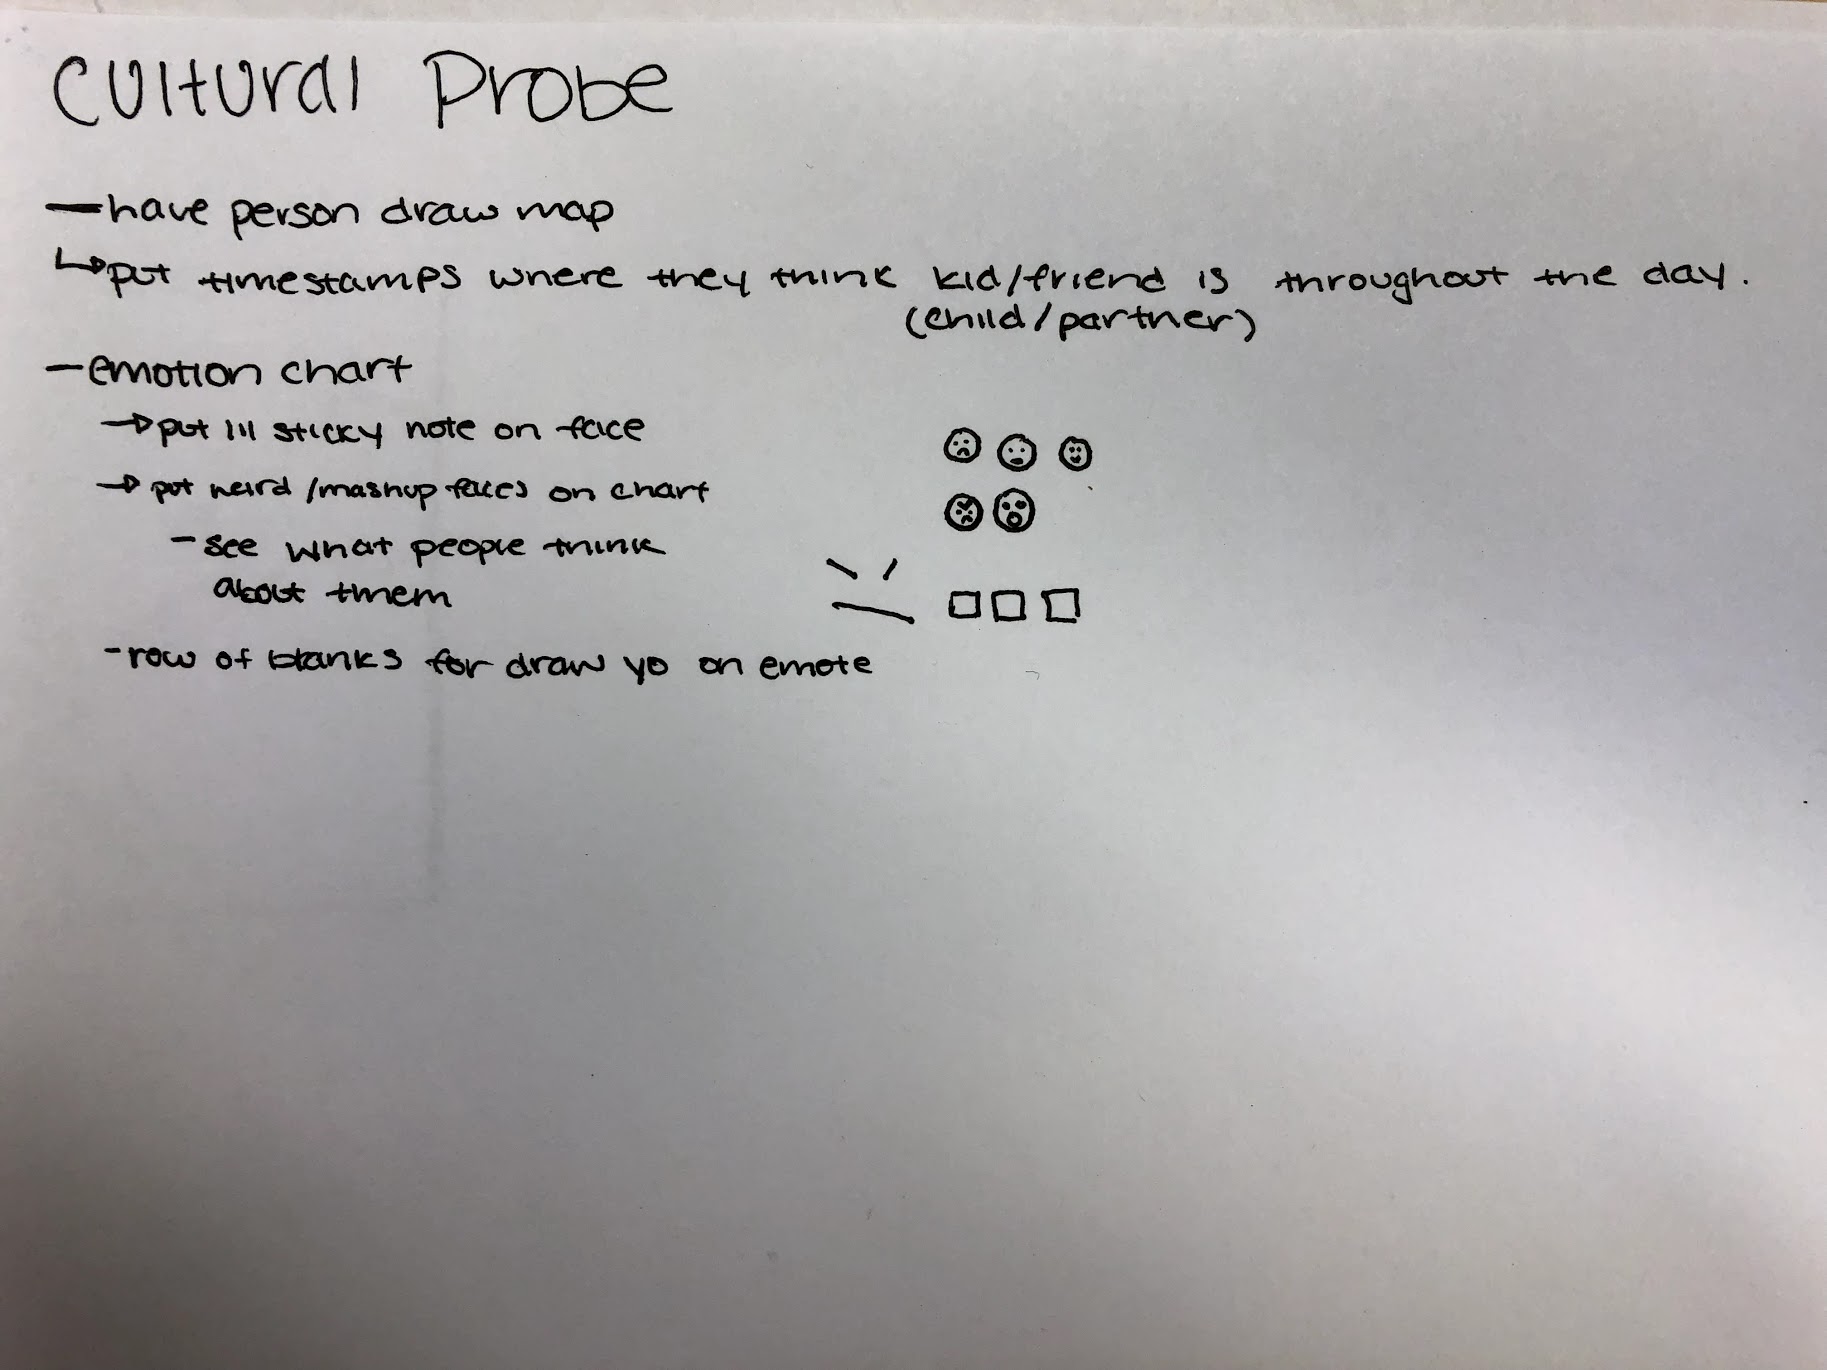 Cultural Probe
— have person draw map
↳ put timestamps where they think kid/friend is throughout the day.
(child/partner)
— emotion chart
→ put lil sticky note on face
→ put weird/mashup faces on chart
- see what people think
about them
- row of blanks for draw yo on emote